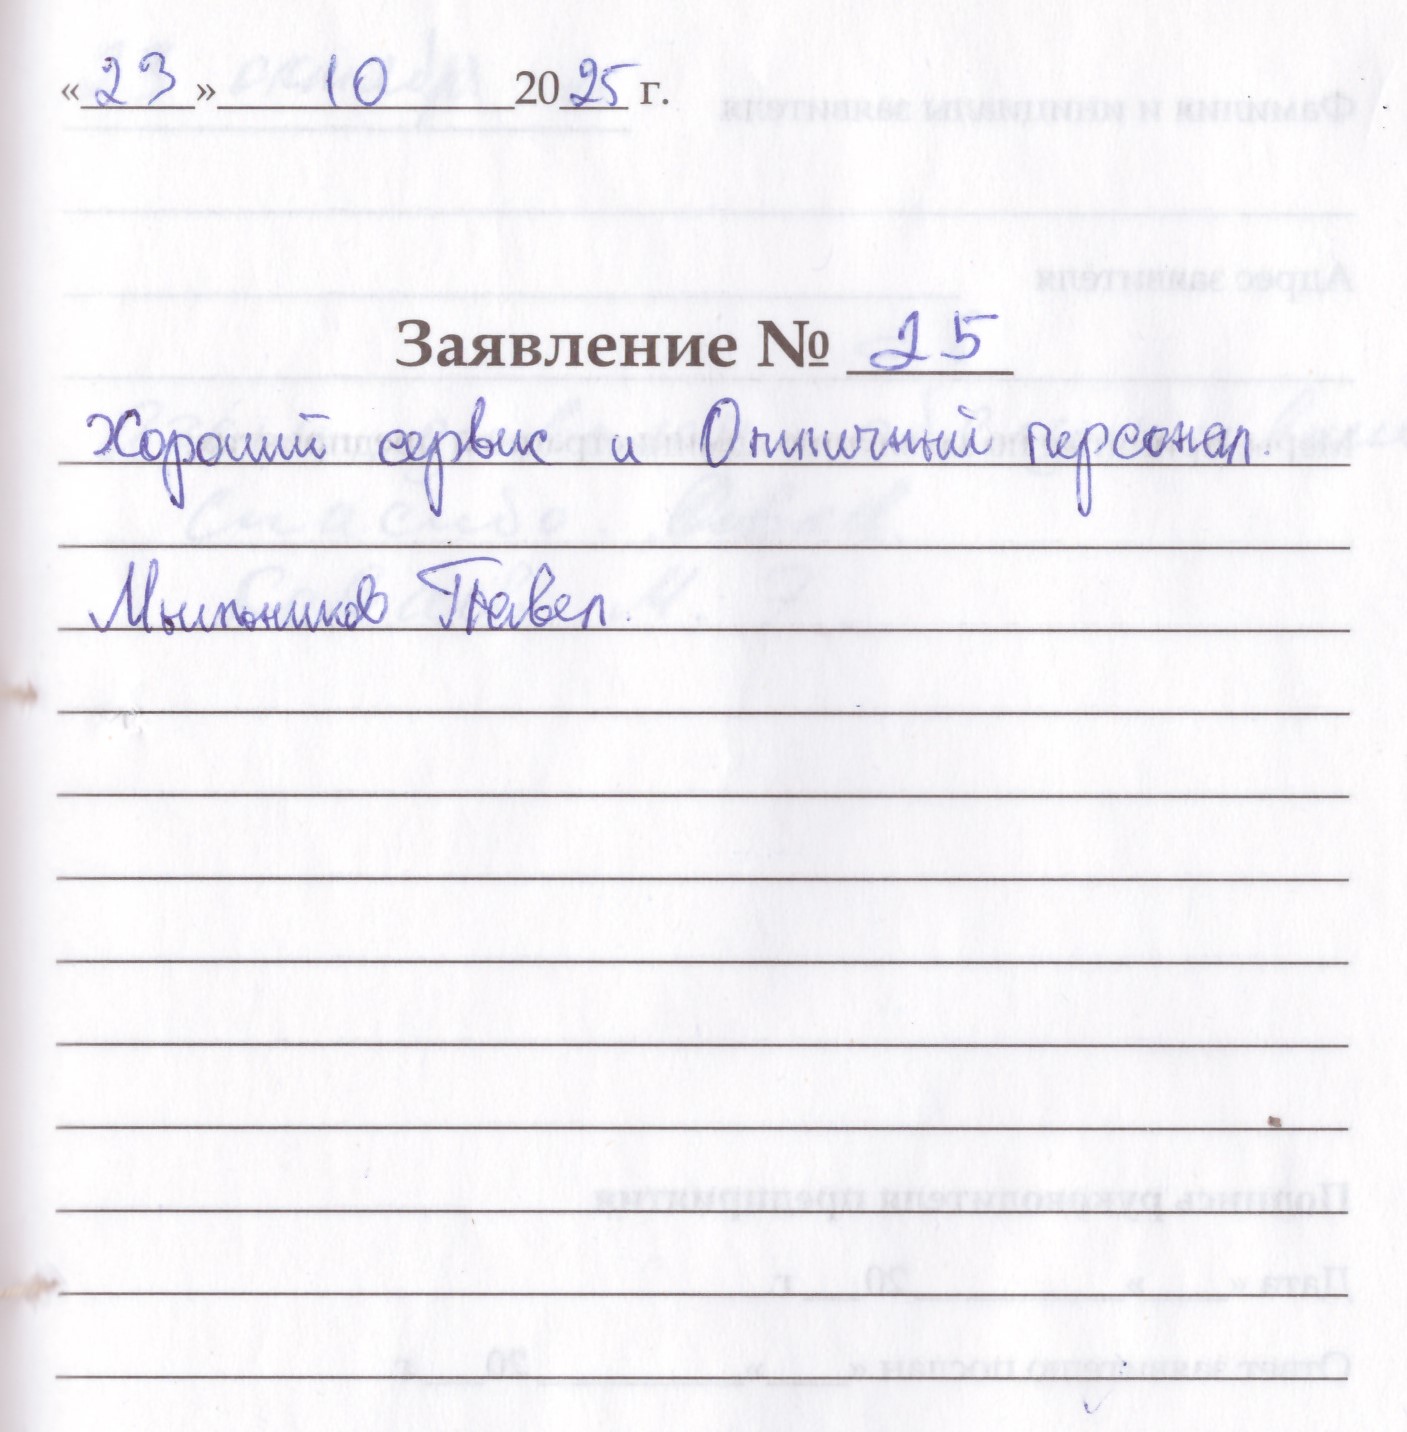 «23» 10 2025 г.
Заявление № 25
Хороший сервис и Отличный персонал.
Мыльников Павел.